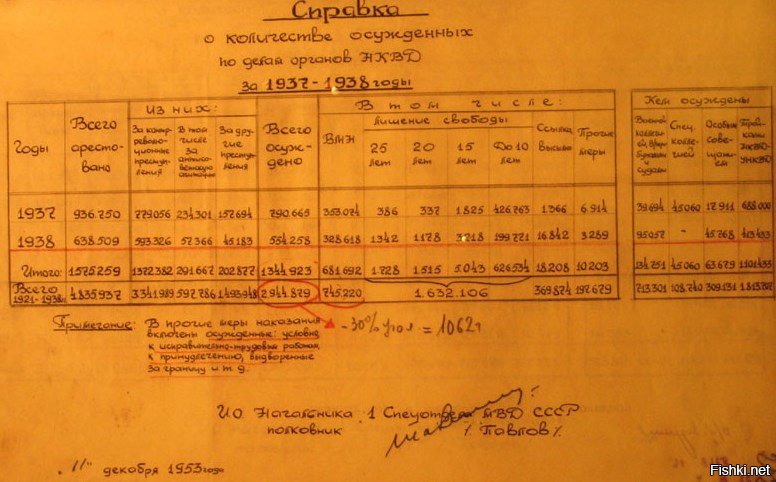 Справка
о количестве осужденных
по делам органов НКВД
за 1937-1938 годы
Годы
Всего арестовано
Из них:
За контрреволюционные преступления
В том числе за антисоветскую агитацию
За другие преступления
Всего осуждено
В том числе:
ВМН
лишение свободы
25 лет
20 лет
15 лет
До 10 лет
Ссылка высылка
Прочие меры
Кем осуждены
Спец. коллегией
Особым совещанием
1937 936.750 779056 234301 157694 790.665 353.074 386 337 1.825 426.763 1.366 6.914 39.694 45.060 17.911 688.000
1938 638.509 593.326 57.366 45.183 554.258 328.618 1342 1178 3.218 199.771 16.842 3.289 95.057 - 45.768 413.433
Итого: 1.575.259 1372382 291.667 202.877 1344.923 681.692 1.728 1.515 5.043 626.534 18.208 10.203 134.751 45.060 63.679 1.101.433
Всего 1921-1938г. 4.835.937 3341989 597.786 1493.948 2.944.879 745.220 1.632.106 369.874 197.679 713.301 108.740 309.131
Примечание: В прочие меры наказания
включены осужденные: условно,
к исправительно-трудовым работам,
к принудлечению, выдворенные
за границу и т.д.
-30% угол = 1062т
И.О. Начальника 1 Спецотдела МВД СССР
полковник /Павлов/.
"11" декабря 1953 года
Fishki.net